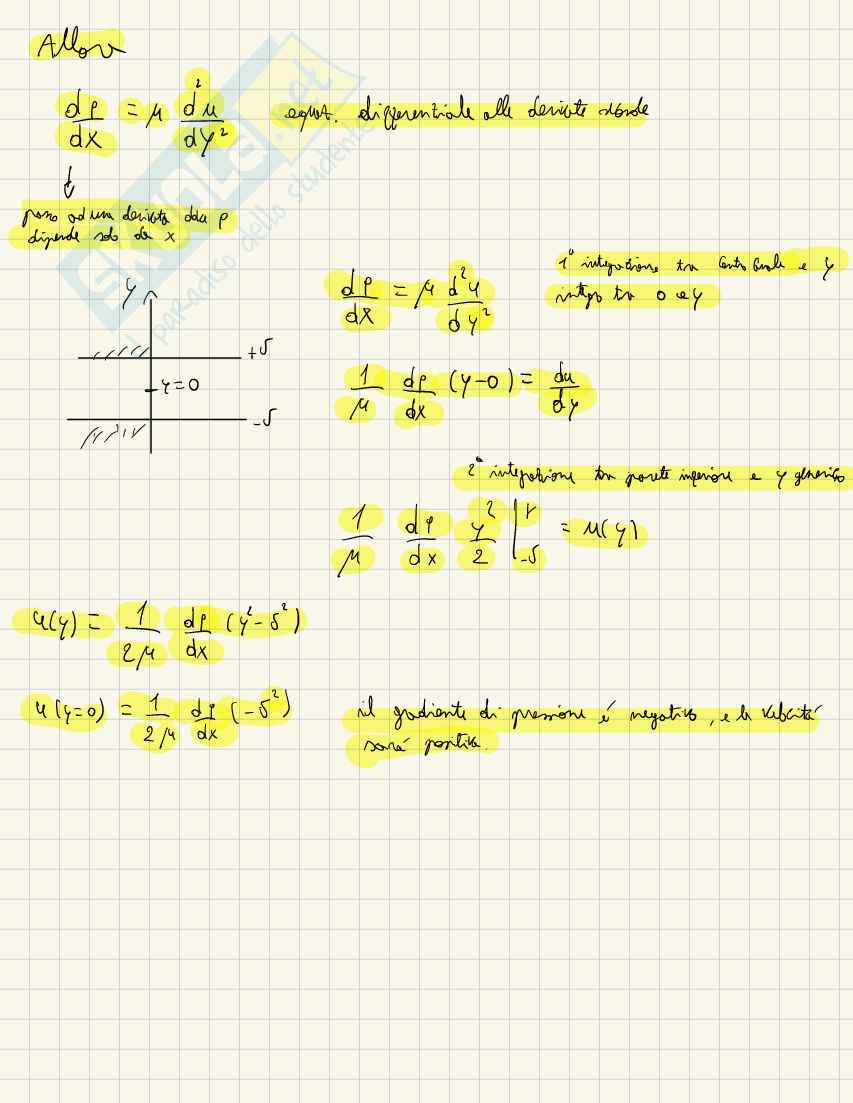 Allora
dp/dx = μ d²u/dy² equaz. differenziale alle derivate seconde
↓
passo ad una derivata data p
dipende solo da x
SKUOLA.net
il paradiso dello studente
1° integrazione tra centro canale e y
integro tra 0 e y
dp/dx = μ d²u/dy²
y
+δ
y=0
-δ
1/μ dp/dx (y-0) = du/dy
2° integrazione tra parete inferiore e y generico
1/μ dp/dx y²/2 |_{-δ}^{y} = u(y)
u(y) = 1/2μ dp/dx (y²-δ²)
u(y=0) = 1/2μ dp/dx (-δ²) il gradiente di pressione é negativo, e la velocitá
sará positiva.